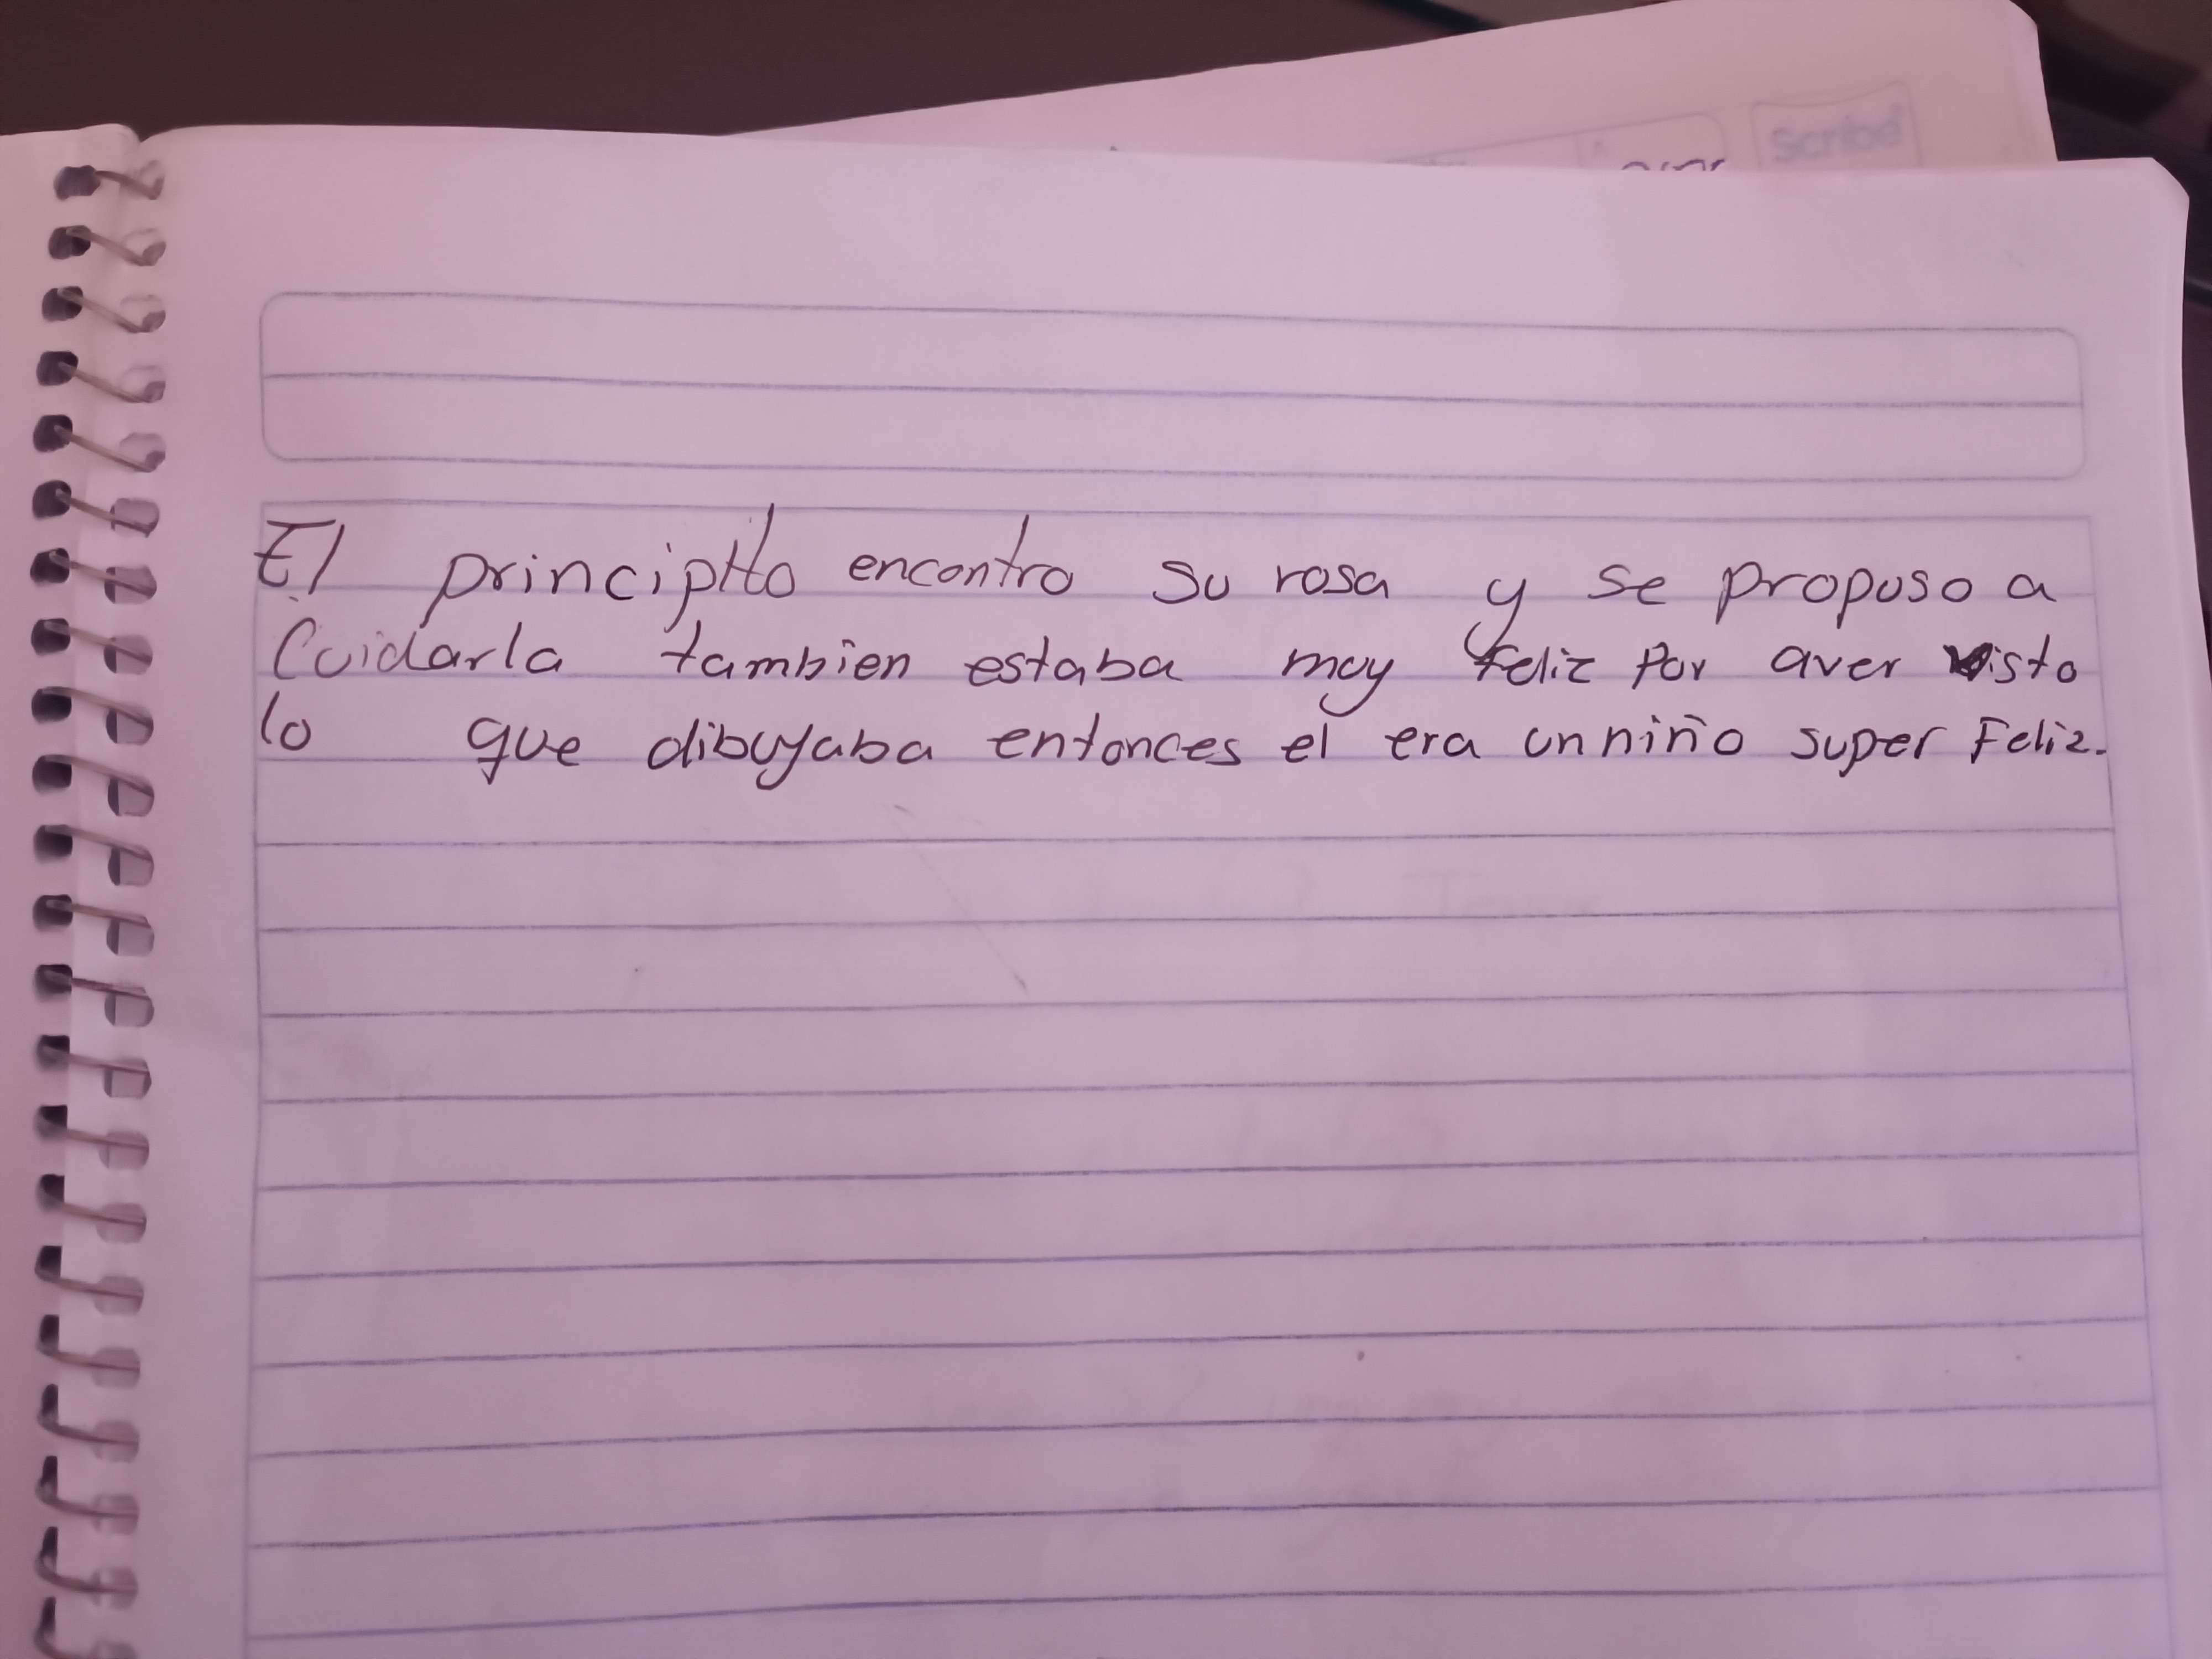 Scribe
El principito encontro su rosa y se propuso a
Cuidarla tambien estaba muy feliz por aver visto
lo que dibujaba entonces el era un niño super Feliz.